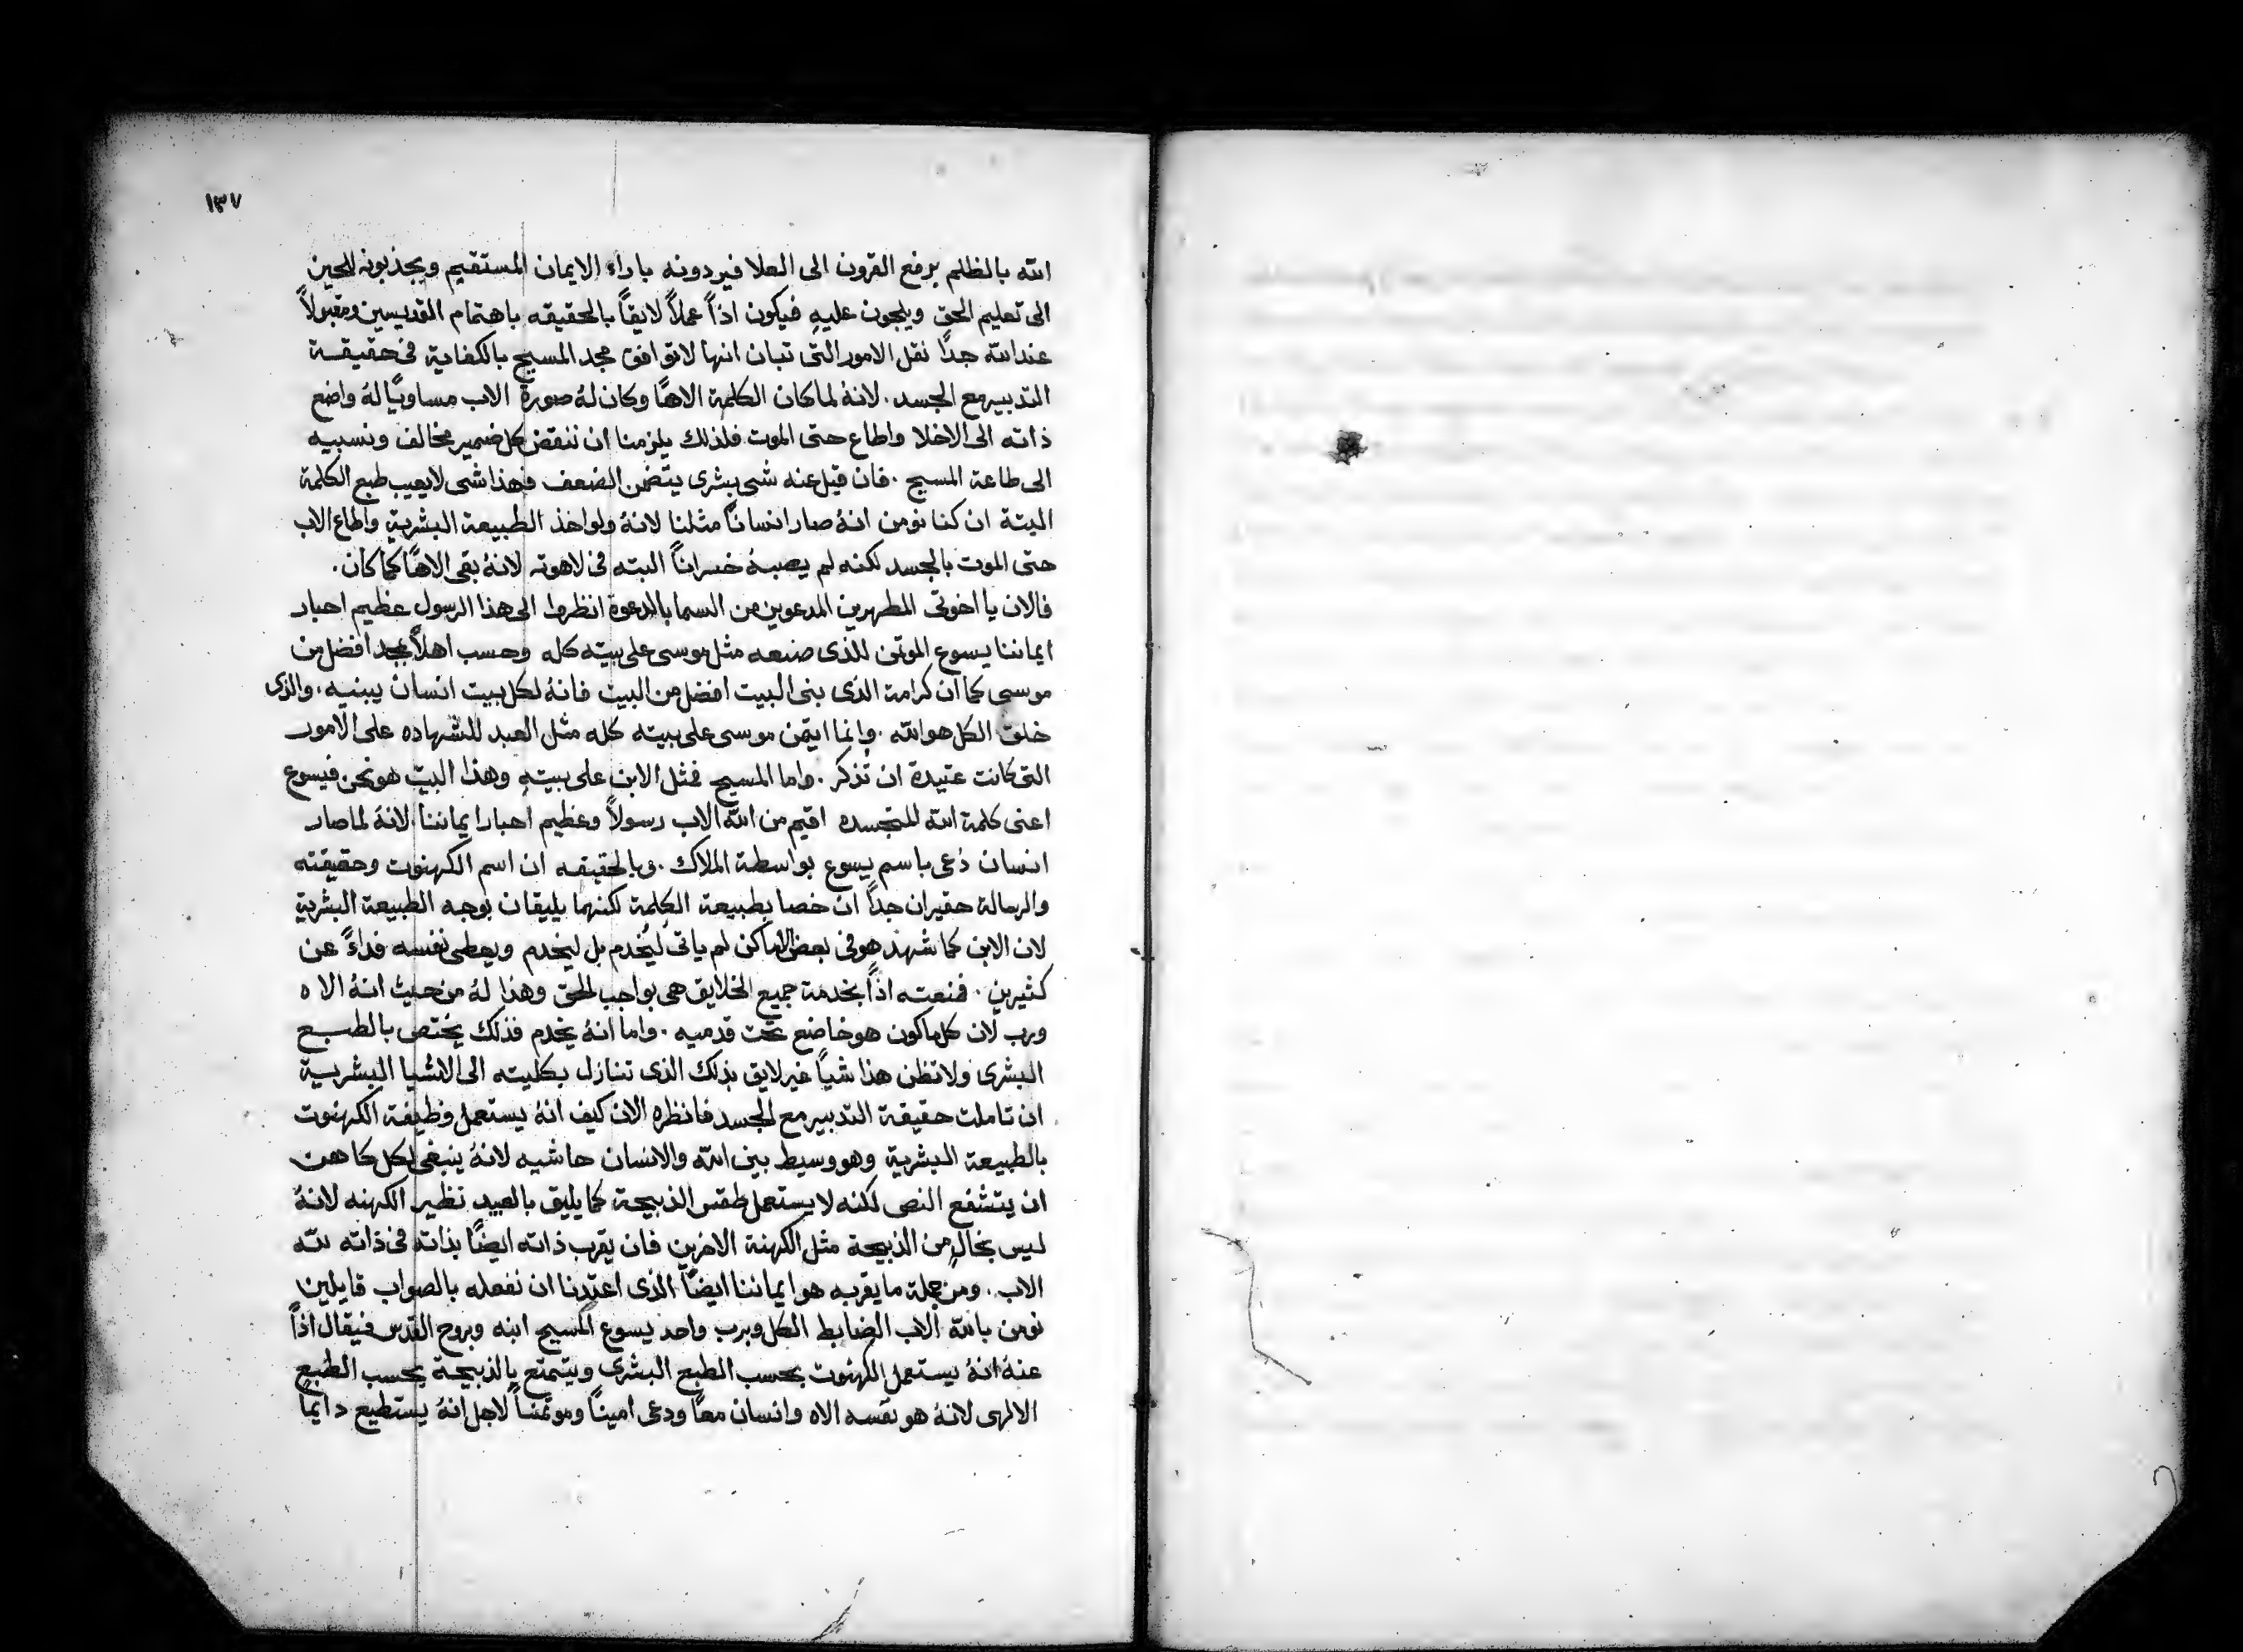 ١٣٧
الله بالظلم برفع القرون الى العلا فيردونه باراء الايمان المستقيم ويجذبونه للحين
الى تعليم الحق ويلجون عليهِ فيكون اذاً عملاً لايقاً بالحقيقه باهتمام القديسين ومقبولاً
عند الله جداً نقل الامور التى تبان انها لاتوافق مجد المسيح بالكفاية فى حقيقـة
التدبير مع الجسد . لانهُ لما كان الكلمة الاهاً وكان لهُ صورة الاب مساوياً لهُ واضع
ذاته الى الاخلا واطاع حتى الموت فلذلك يلزمنا ان ننقض كل ضمير مخالف ونسبيه
الى طاعة المسيح . فان قيل عنه شى بشرى يتضمن الضعف فهذا شى لايعيب طبع الكلمة
البتة ان كنا نومن انهُ صار انساناً مثلنا لانهُ ولو اخذ الطبيعة البشرية واطاع الاب
حتى الموت بالجسد لكنه لم يصبهُ خسراناً البته فى لاهوته لانهُ بقى الاهاً كما كان .
فالان يا اخوتى المطهرين المدعوين من السما بالدعوة انظروا الى هذا الرسول عظيم احبار
ايماننا يسوع الموتمن للذى صنعه مثل موسى على بيته كله وحسب اهلاً بمجد افضل من
موسى كما ان كرامة الذى بنى البيت افضل من البيت فانهُ لكل بيت انسان يبنيه . والذى
خلق الكل هو الله . وانما ايتمن موسى على بيته كله مثل العبد للشهاده على الامور
التى كانت عتيدة ان تُذكر . واما المسيح فمثل الابن على بيتهِ وهذا البيت هو نحن فيسوع
اعنى كلمة الله المتجسده اقيم من الله الاب رسولاً وعظيم احبار ايماننا لانهُ لما صار
انسان دُعى باسم يسوع بواسطة الملاك . وبالحقيقه ان اسم الكهنوت وحقيقته
والرسالة حقيران جداً ان خصا بطبيعة الكلمة لكنهما يليقان بوجه الطبيعة البشرية
لان الابن كما شهد هو فى بعض الاماكن لم ياتى ليُخدم بل ليخدم ويعطى نفسه فداءً عن
كثيرين . فمنعته اذاً بخدمة جميع الخلايق هى بواجب الحق وهذا لهُ من حيث انهُ الاه
ورب لان كل ماكون هو خاضع تحت قدميه . واما انهُ يخدم فذلك يختص بالطبـع
البشرى ولاتظن هذا شياً غير لايق بذلك الذى تنازل بكليته الى الاشيا البشريـة
ان تاملت حقيقة التدبير مع الجسد فانظره الان كيف انهُ يستعمل وظيفة الكهنوت
بالطبيعة البشرية وهو وسيط بين الله والانسان حاشيه لانهُ ينبغى لكل كاهن
ان يتشفع النص لكنه لا يستعمل طقس الذبيحة كما يليق بالعبيد نظير الكهنه لانهُ
ليس بخالٍ من الذبيحة مثل الكهنة الاخرين فان يقرب ذاته ايضاً بذاته فى ذاته لله
الاب . ومن جملة ما يقربه هو ايماننا ايضاً الذى اعتدنا ان نفعله بالصواب قايلين
نومن بالله الاب الضابط الكل وبرب واحد يسوع المسيح ابنه وبروح القدس فيقال اذاً
عنهُ انهُ يستعمل الكهنوت بحسب الطبع البشرى ويتمتع بالذبيحة بحسب الطبع
الالهى لانهُ هو نفسه الاه وانسان معاً ودعى اميناً وموتمناً لاجل انهُ يستطيع دايماً